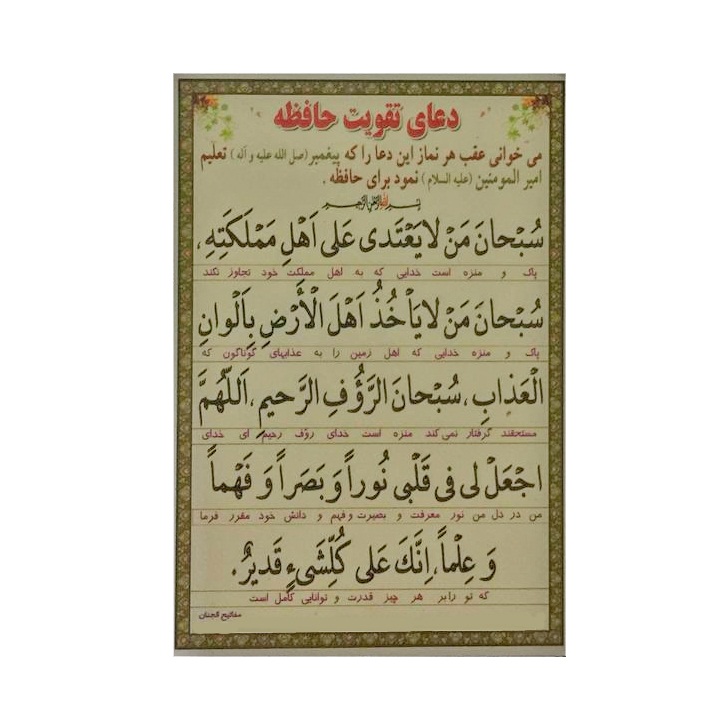 دعای تقویت حافظه
می خوانی عقب هر نماز این دعا را که پیغمبر (صل الله علیه و آله) تعلیم
امیر المومنین (علیه السلام) نمود برای حافظه .
بسم الله الرحمن الرحیم
سُبْحانَ مَنْ لا یَعْتَدی عَلی اَهْلِ مَمْلَکَتِهِ،
پاک و منزه است خدایی که به اهل مملکت خود تجاوز نکند
سُبْحانَ مَنْ لا یَأخُذُ اَهْلَ الْأَرْضِ بِاَلْوانِ
پاک و منزه خدایی که اهل زمین را به عذابهای گوناگون که
الْعَذابِ، سُبْحانَ الرَّؤُفِ الرَّحیمِ، اَللّهُمَّ
مستحقند گرفتار نمی کند منزه است خدای روف رحیم ای خدای
اجْعَلْ لی فی قَلْبی نُوراً وَ بَصَراً وَ فَهْماً
من در دل من نور معرفت و بصیرت و فهم و دانش خود مقرر فرما
وَ عِلْماً، اِنَّکَ عَلی کُلِّشَیءٍ قَدیرٌ.
که تو رابر هر چیز قدرت و توانایی کامل است
مفاتیح الجنان